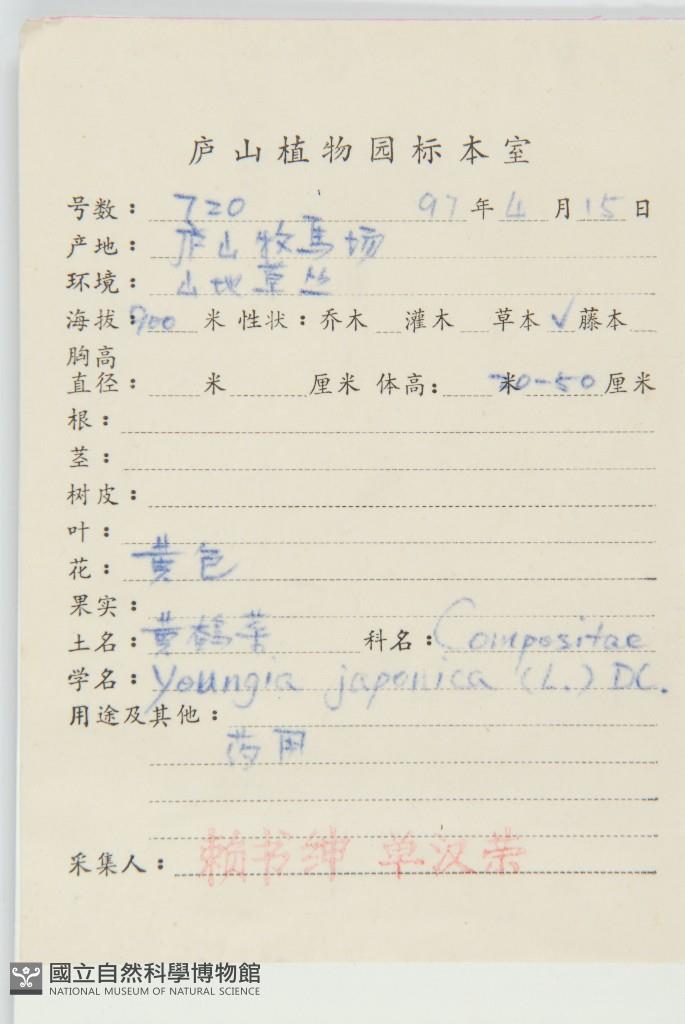 庐山植物园标本室
号数：720 97年4月15日
产地：庐山牧馬场
环境：山地草丛
海拔：900米 性状：乔木 灌木 草本✓藤本
胸高
直径： 米 厘米 体高： 米 -50厘米
根：
茎：
树皮：
叶：
花：黄色
果实：
土名：黄鹌菜 科名：Compositae
学名：Youngia japonica (L.) DC.
用途及其他：
药用
采集人：赖书绅 单汉荣
國立自然科學博物館
NATIONAL MUSEUM OF NATURAL SCIENCE